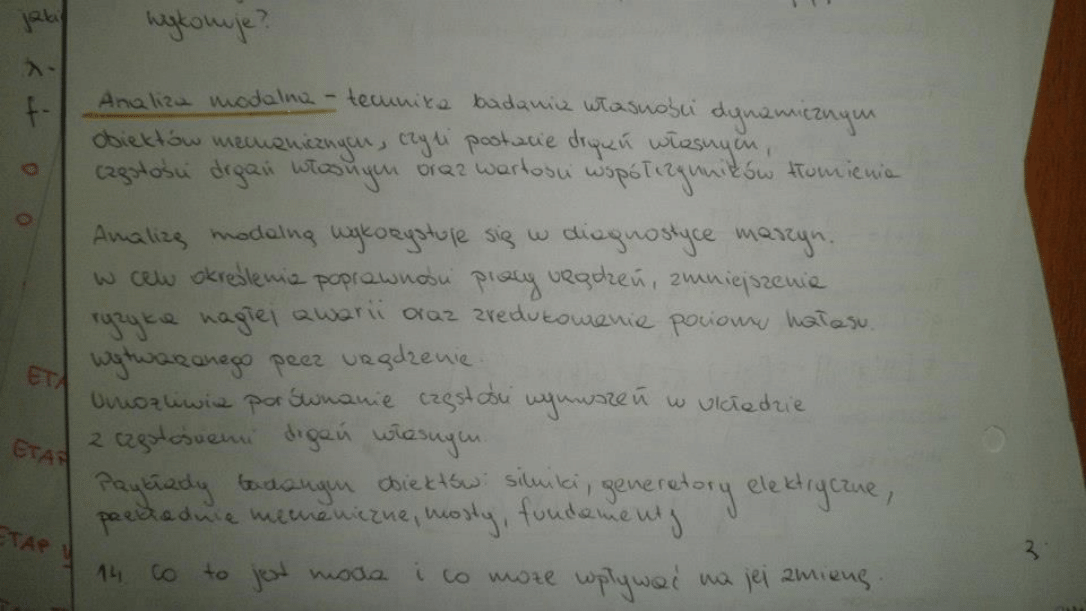 jaki
wykonuje?
λ-
f-
Analiza modalna - technika badania własności dynamicznym
obiektów mechanicznym, czyli postacie drgań własnym,
częstości drgań własnym oraz wartości współczynników tłumienia
Analizę modalną wykozystuje się w diagnostyce maszyn.
w celu określenia poprawności pracy uządzeń, zmniejszenia
ryzyka nagłej awarii oraz zredukowania poziomu hałasu.
wytwazanego pzez uządzenie.
Umożliwia porównanie częstości wymuszeń w układzie
z częstościami drgań własnym.
Pzykłady badanym obiektów: silniki, generatory elektryczne,
pzekładnie mechaniczne, mosty, fundamenty
14, Co to jest moda i co może wpływać na jej zmianę.
ETA
ETAP
ETAP
3.